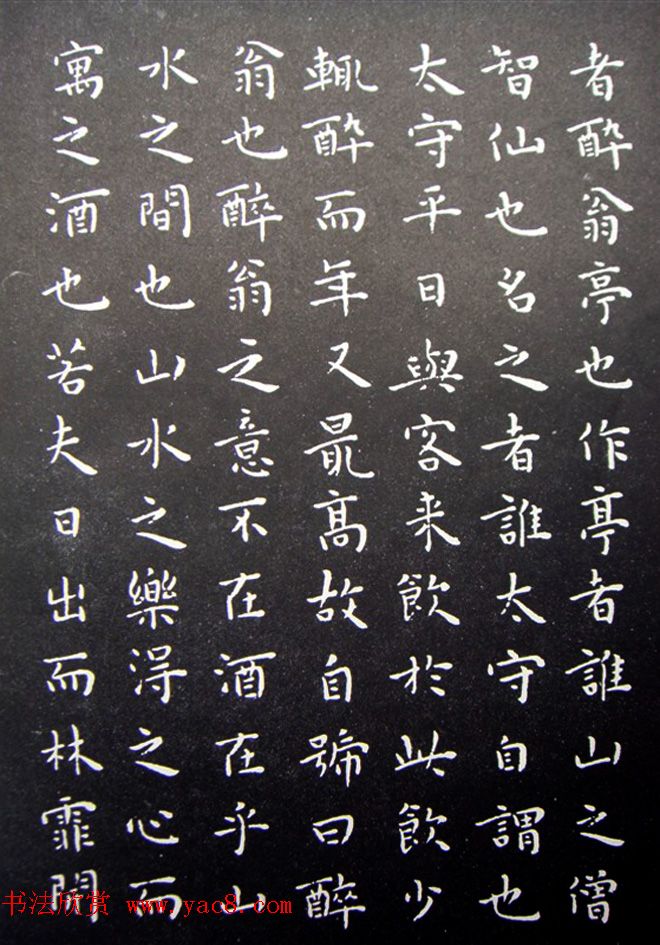 者醉翁亭也作亭者誰山之僧
智仙也名之者誰太守自謂也
太守平日與客来飲於此飲少
輒醉而年又最高故自號曰醉
翁也醉翁之意不在酒在乎山
水之間也山水之樂得之心而
寓之酒也若夫日出而林霏開
书法欣赏 www.yac8.com